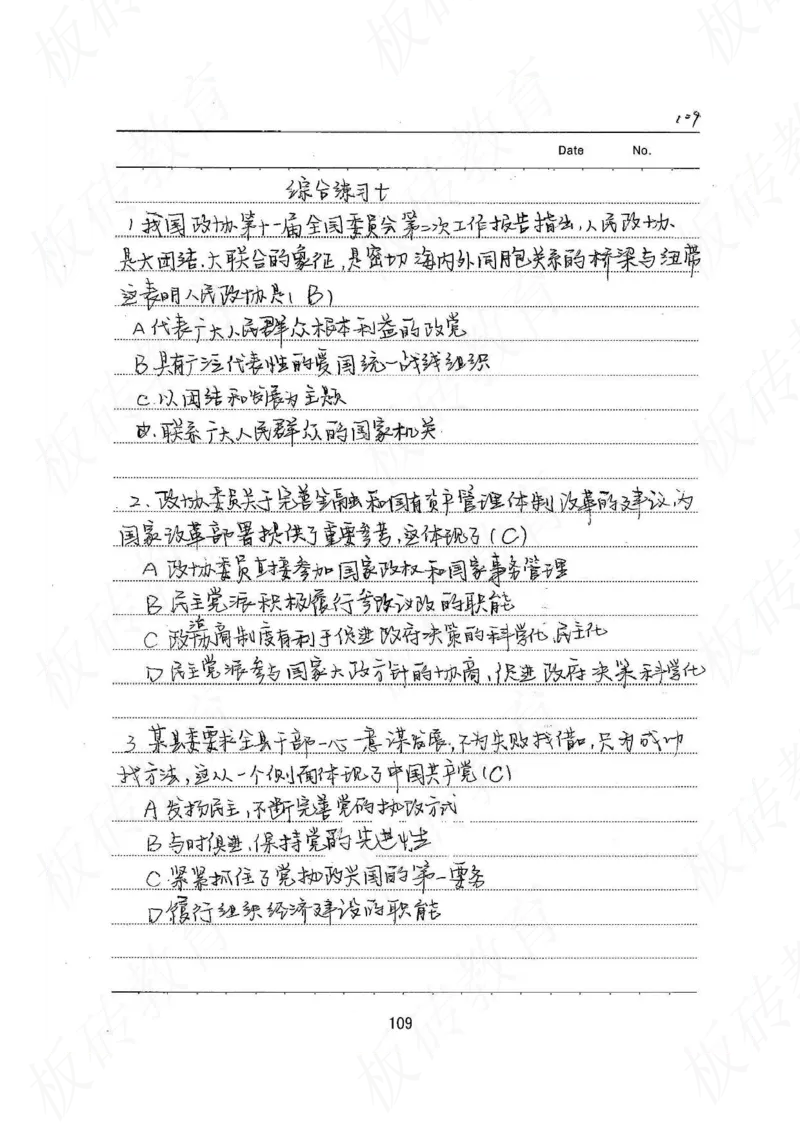 109
Date No.
综合练习七
1 我国政协第十一届全国委员会第二次工作报告指出,人民政协
是大团结、大联合的象征,是密切海内外同胞关系的桥梁与纽带
这表明人民政协是(B)
A 代表广大人民群众根本利益的政党
B 具有广泛代表性的爱国统一战线组织
C.以团结和发展为主题
D.联系广大人民群众的国家机关
2、政协委员关于完善金融和国有资产管理体制改革的建议为
国家改革部署提供了重要参考,这体现了(C)
A 政协委员直接参加国家政权和国家事务管理
B 民主党派积极履行参政议政的职能
C 政治协商制度有利于促进政府决策的科学化、民主化
D 民主党派参与国家大政方针的协商,促进政府决策科学化
3 某县委要求全县干部一心一意谋发展,不为失败找借口,只为成功
找方法,这从一个侧面体现了中国共产党(C)
A 发扬民主,不断完善党的执政方式
B 与时俱进,保持党的先进性
C 紧紧抓住了党执政兴国的第一要务
D 履行组织经济建设的职能
109
板砖教育